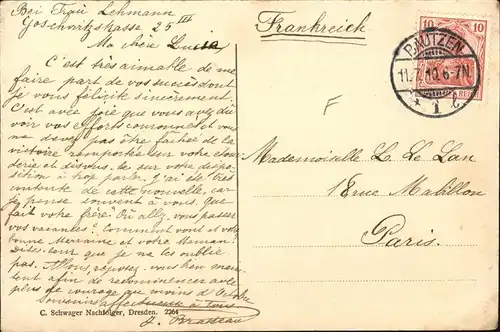 Bei Frau Lehmann
Goschwitzstrasse 25 III
Ma chère Lucie
C'est très aimable de me
faire part de vos succès dont
je vous félicite sincèrement.
C'est avec joie que vous avez dû
voir vos efforts couronnés et vous
ne devez pas être fâchée de la
victoire remportée sur votre
et sur votre
sition à trop parler. J'ai été très
contente de cette nouvelle, car
je pense souvent à vous. Que
fait votre frère? Où allez-vous passer
vos vacances? Comment vont et votre
bonne Marraine et votre Maman?
Dites-leur que je ne les oublie
pas. Allons, reposez-vous bien
afin de recommencer avec
plus de courage au mois d'Octobre
Souvenirs affectueux à tous
C. Schwager Nachfolger, Dresden. 2264
Frankreich
10 10
BAUTZEN
11.7.10. 6-7N.
REICH
F
Mademoiselle L. Le Lan
18 rue Mabillon
Paris.